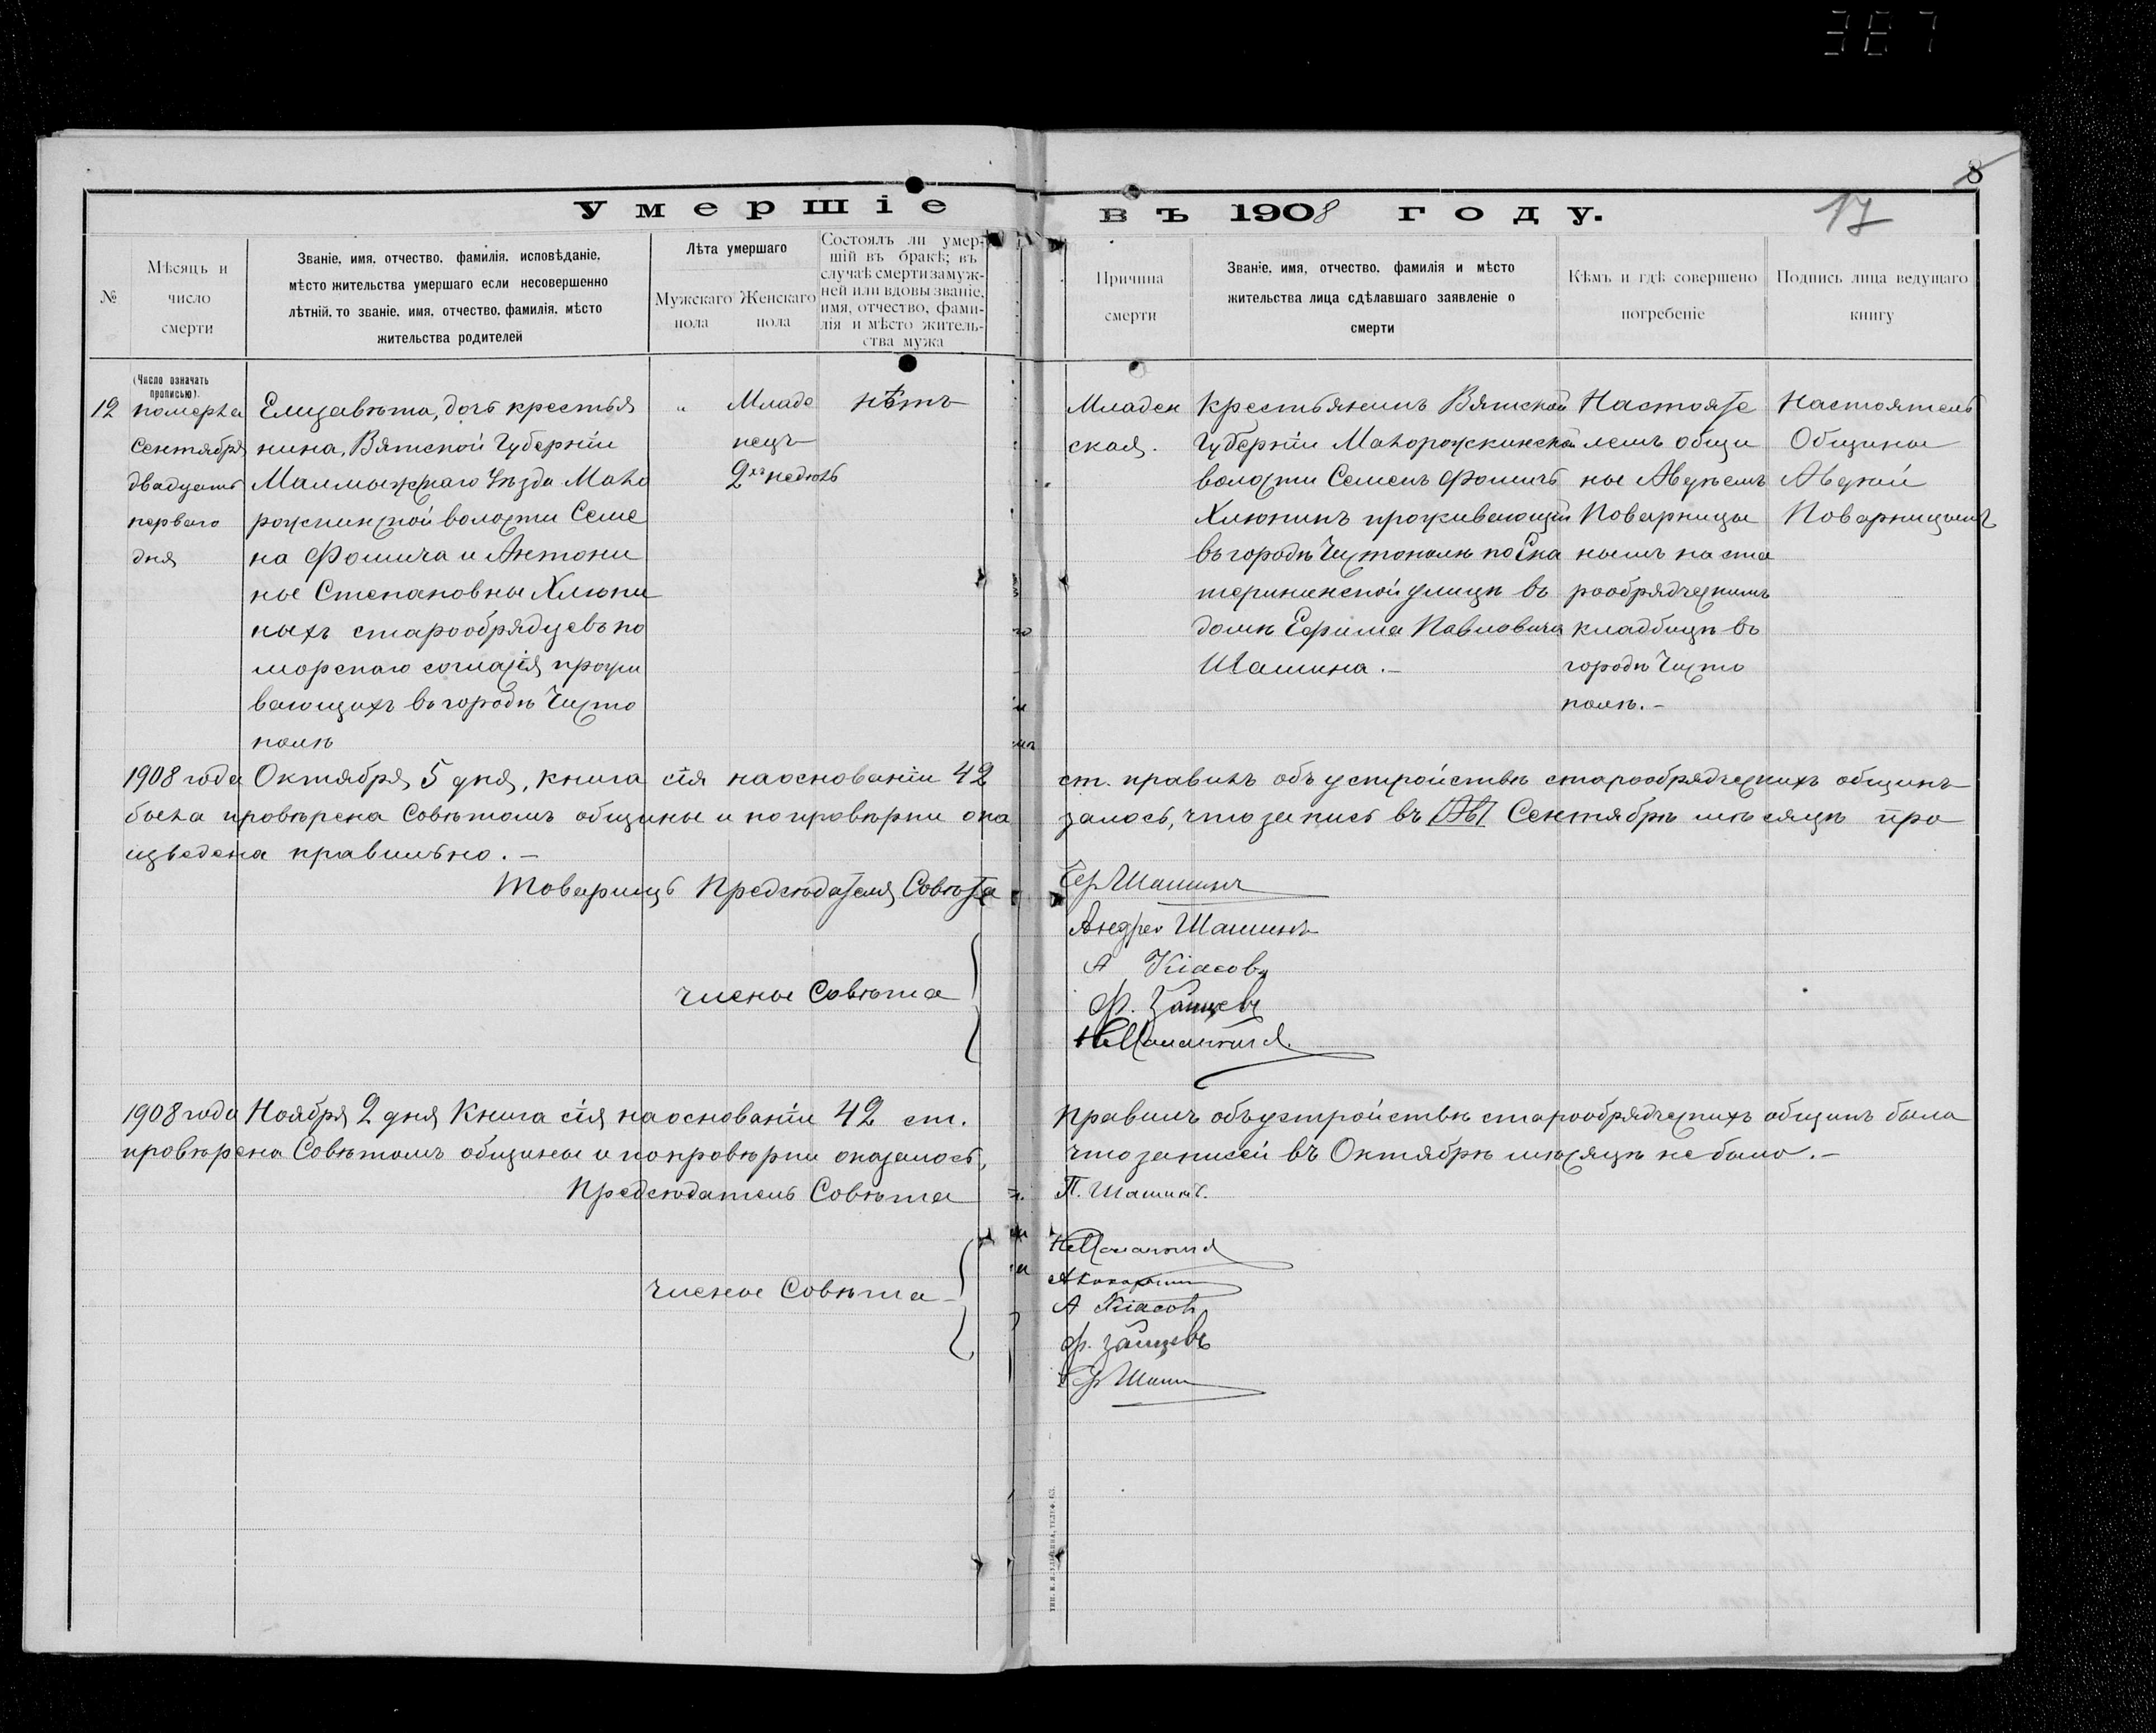 387
8
17
Умершіе въ 1908 году.
№
Мѣсяцъ и
число
смерти
Званіе, имя, отчество, фамилія, исповѣданіе,
мѣсто жительства умершаго если несовершенно
лѣтній, то званіе, имя, отчество, фамилія, мѣсто
жительства родителей
Лѣта умершаго
Мужскаго
пола
Женскаго
пола
Состоялъ ли умер-
шій въ бракѣ; въ
случаѣ смерти замуж-
ней или вдовы званіе,
имя, отчество, фами-
лія и мѣсто житель-
ства мужа
Причина
смерти
Званіе, имя, отчество, фамилія и мѣсто
жительства лица сдѣлавшаго заявленіе о
смерти
Кѣмъ и гдѣ совершено
погребеніе
Подпись лица ведущаго
книгу
(Число означать
прописью).
12
померла
Сентября
двадцать
перваго
дня
Елизавѣта, дочь крестья
нина, Вятской Губерніи
Малмыжскаго Уѣзда Мало
рожкинской волости Семе
на Фомича и Антони
ны Степановны Хлюпи
ныхъ старообрядцевъ по
морскаго согласія прожи
вающихъ въ городѣ Чисто
полѣ
"
Младе
нецъ
2хъ недѣль
нѣтъ
Младен
ская.
Крестьянинъ Вятской
Губерніи Малорожкинской
волости Семенъ Фомичъ
Хлюпинъ проживающій
въ городѣ Чистополѣ по Ека
терининской улицѣ въ
домѣ Ефима Павловича
Шашина.-
Настояте
лемъ общи
ны Авдѣемъ
Поварницы
нымъ на ста
рообрядческомъ
кладбищѣ въ
городѣ Чисто
полѣ.-
Настоятель
Общины
Авдѣй
Поварницынъ
1908 года Октября 5 дня, книга сія на основаніи 42 ст. правилъ объ устройствѣ старообрядческихъ общинъ
была провѣрена Совѣтомъ общины и по провѣрки ока залось, что запись въ Ав Сентябрѣ мѣсяцѣ про
изведена правильно.-
Товарищъ Предсѣдателя Совѣта Еф Шашинъ
Члены Совѣта
Андрей Шашинъ
А Кіасовъ
Ф. Зайцевъ
1908 года Ноября 2 дня Книга сія на основаніи 42 ст. правилъ объ устройствѣ старообрядческихъ общинъ была
провѣрена Совѣтомъ общины и по провѣрки оказалось, что записей въ Октябрѣ мѣсяцѣ не было.-
Предсѣдатель Совѣта П. Шашинъ.
Члены Совѣта
А Кіасовъ
Ф. Зайцевъ
Еф Шашин